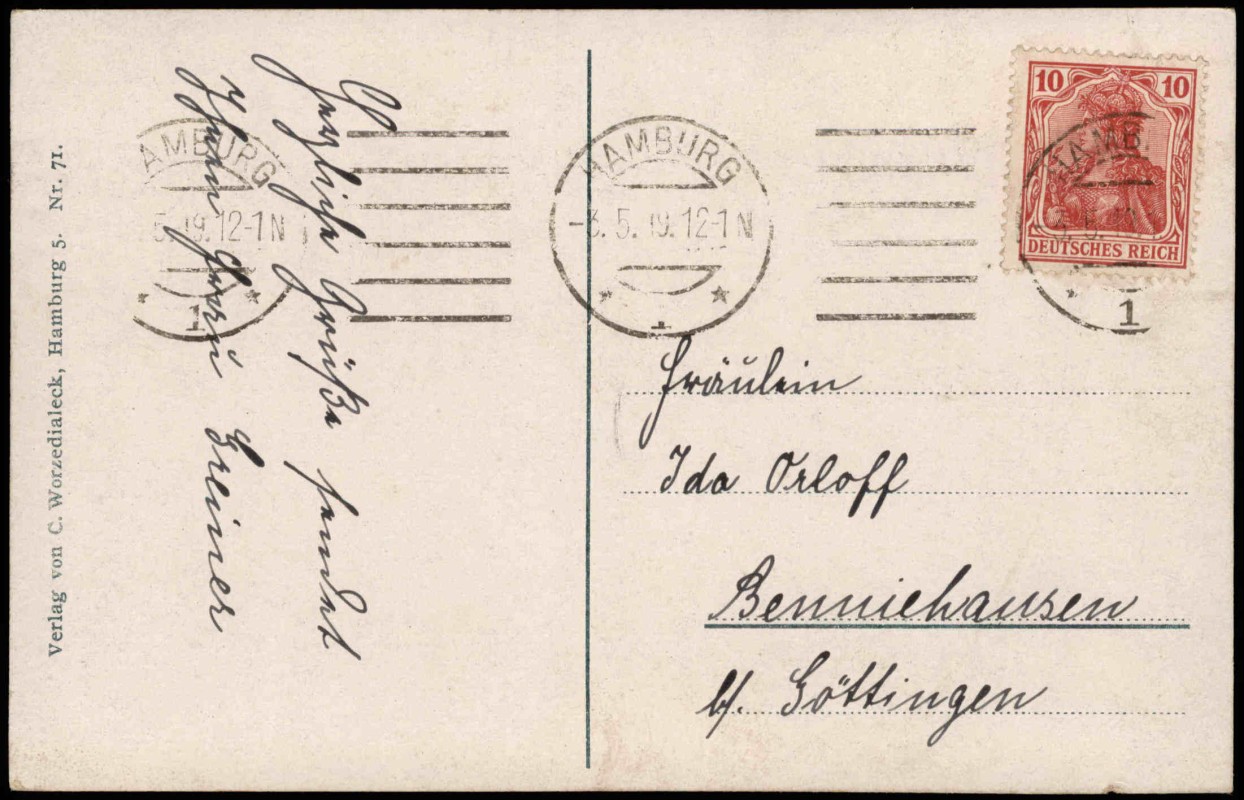 Verlag von C. Worzedialeck, Hamburg 5. Nr. 71.
Herzliche Grüße sendet
Ihnen
AMBURG
5.19.12-1N
* 1 *
HAMBURG
-3.5.19.12-1N
* 1 *
10 10
DEUTSCHES REICH
HAMB.
* 1
Fräulein
Ida Orloff
Benniehausen
b/. Göttingen